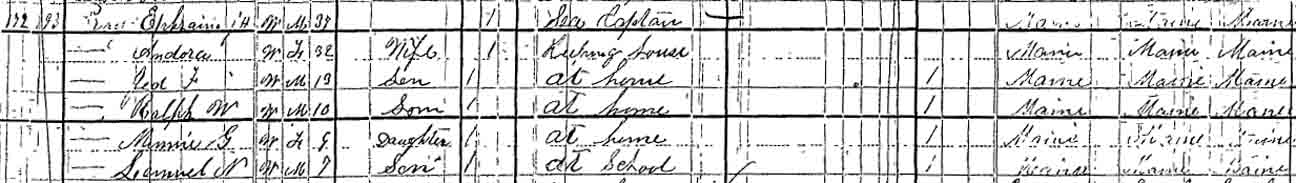 172 193 Ephraim H W M 37 1 Sea Captain Maine Maine Maine
— Andora W F 32 Wife 1 Keeping house Maine Maine Maine
— F W M 13 Son 1 at home 1 Maine Maine Maine
— Ralph W W M 10 Son 1 at home 1 Maine Maine Maine
— Minnie G W F Daughter 1 at home 1 Maine Maine Maine
— Samuel N W M 7 Son 1 at School 1 Maine Maine Maine